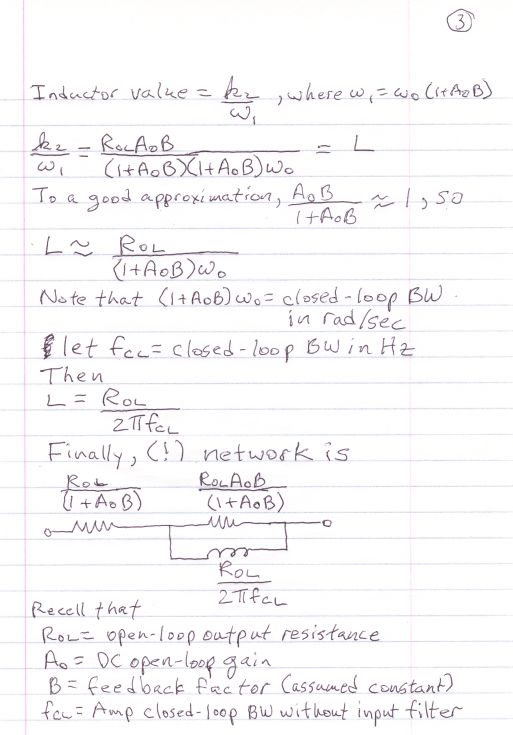 3
Inductor value = k₂/ω₁, where ω₁ = ω₀(1+A₀B)
k₂/ω₁ = R₀LA₀B/((1+A₀B)(1+A₀B)ω₀) = L
To a good approximation, A₀B/(1+A₀B) ≈ 1, so
L ≈ R₀L/((1+A₀B)ω₀)
Note that (1+A₀B)ω₀ = closed-loop BW
in rad/sec
let fCL = closed-loop BW in Hz
Then
L = ROL/(2πfCL)
Finally, (!) network is
ROL/(1+A₀B) ROLA₀B/(1+A₀B)
ROL/(2πfCL)
Recall that
ROL = open-loop output resistance
A₀ = DC open-loop gain
B = feedback factor (assumed constant)
fCL = Amp closed-loop BW without input filter